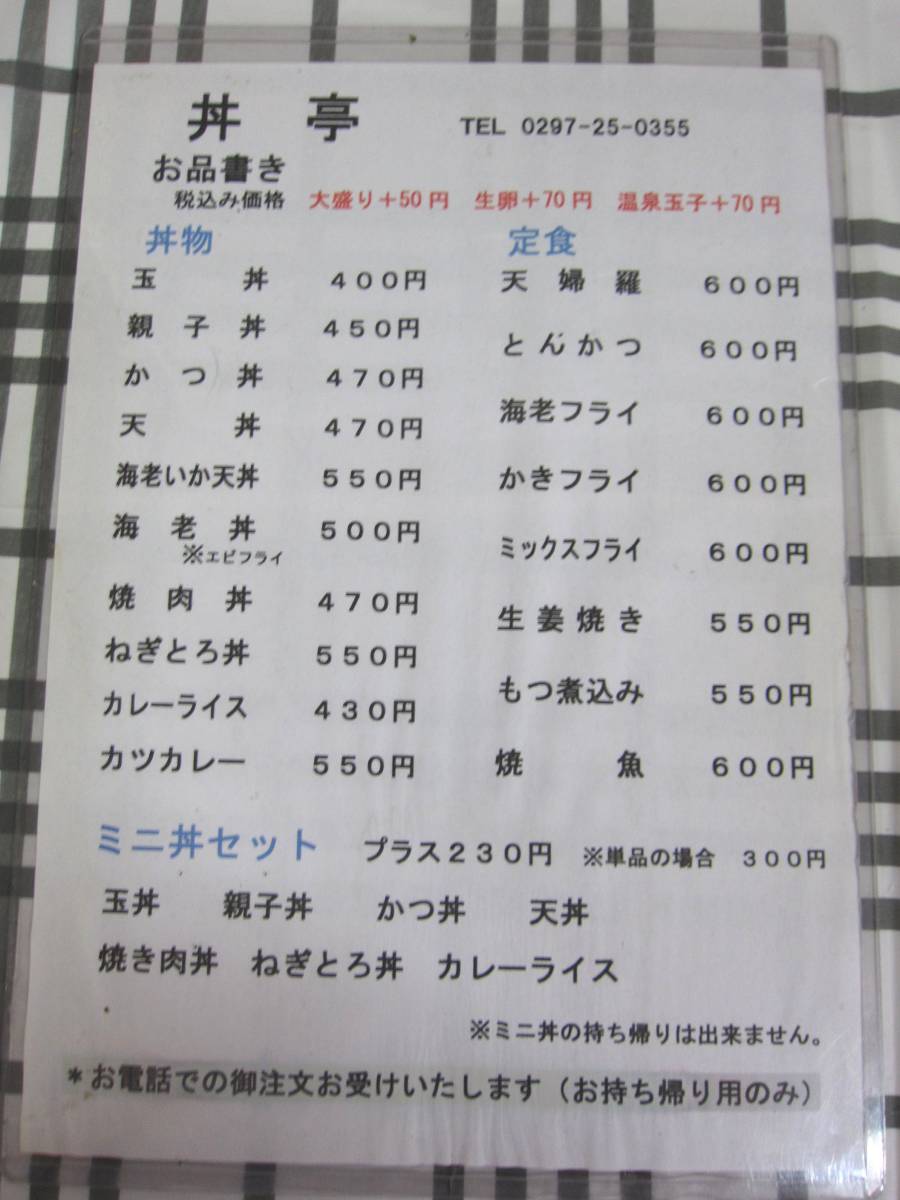 丼 亭 TEL 0297-25-0355
お品書き
税込み価格 大盛り+50円 生卵+70円 温泉玉子+70円
丼物
玉 丼 400円
親 子 丼 450円
か つ 丼 470円
天 丼 470円
海老いか天丼 550円
海 老 丼 500円
※エビフライ
焼 肉 丼 470円
ねぎとろ丼 550円
カレーライス 430円
カツカレー 550円
定食
天 婦 羅 600円
とんかつ 600円
海老フライ 600円
かきフライ 600円
ミックスフライ 600円
生姜焼き 550円
もつ煮込み 550円
焼 魚 600円
ミニ丼セット プラス230円 ※単品の場合 300円
玉丼 親子丼 かつ丼 天丼
焼き肉丼 ねぎとろ丼 カレーライス
※ミニ丼の持ち帰りは出来ません。
*お電話での御注文お受けいたします(お持ち帰り用のみ)